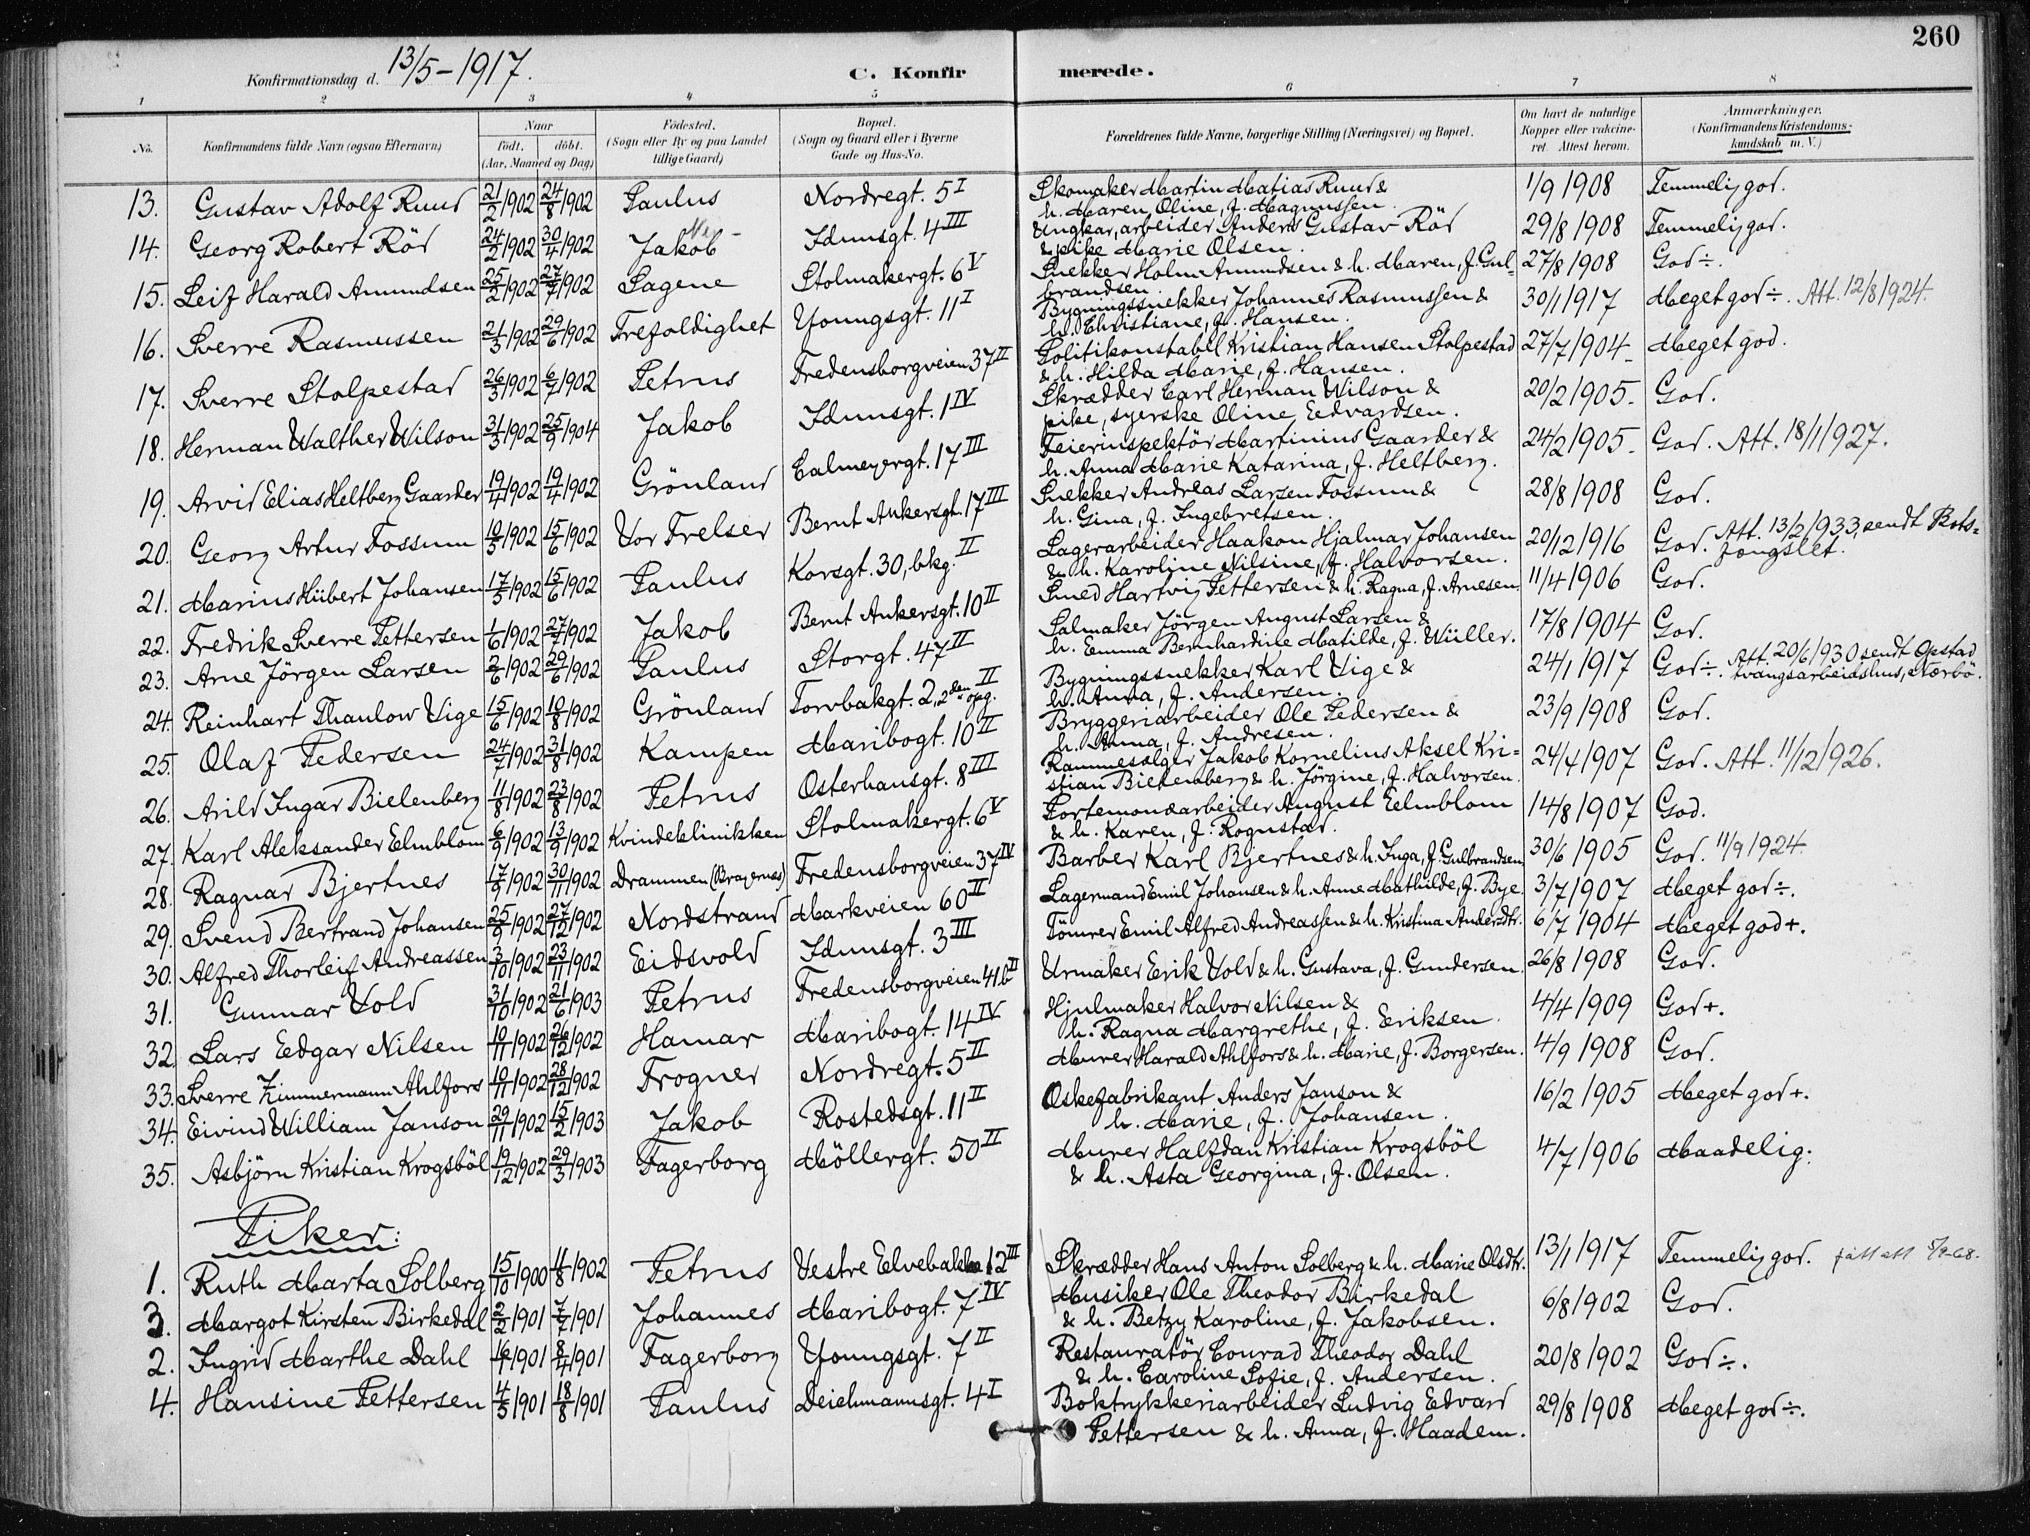 260
Konfirmationsdag d. 13/5-1917. C. Konfirmerede.
1 2 3 4 5 6 7 8
No. Konfirmandens fulde Navn (ogsaa Efternavn) Naar født. døbt. (Aar, Maaned og Dag) Fødested. (Sogn eller By og paa Landet tillige Gaard) Bopæl. (Sogn og Gaard eller i Byerne Gade og Hus-No. Forældrenes fulde Navne, borgerlige Stilling (Næringsvei) og Bopæl. Om havt de naturlige Kopper eller vaccineret. Attest herom. Anmærkninger. (Konfirmandens Kristendomskundskab m. V.)
13. Gustav Adolf Ruud 21/2 1902 24/8 1902 Paulus Nordregt. 5 I Skomaker Martin Matias Ruud & h. Maren Oline, f. Magnussen. 1/9 1908 Temmelig god.
14. Georg Robert Rör 24/2 1902 30/4 1902 Jakob Idunsgt. 4 III Ungkar, arbeider Anders Gustav Rör & pike Marie Olsen. 29/8 1908 Temmelig god.
15. Leif Harald Amundsen 25/2 1902 27/7 1902 Sagene Stolmakergt. 6 V Snekker Holm Amundsen & h. Maren, f. Gulbrandsen. 27/8 1908 God÷.
16. Sverre Rasmussen 21/3 1902 29/6 1902 Trefoldighet Youngsgt. 11 I Bygningssnekker Johannes Rasmussen & h. Christiane, f. Hansen. 30/1 1917 Meget god÷. Att. 12/8 1924.
17. Sverre Stolpestad 26/3 1902 6/7 1902 Petrus Fredensborgveien 37 II Politikonstabel Kristian Hansen Stolpestad & h. Hilda Marie, f. Hansen. 27/7 1904 Meget god.
18. Herman Walther Wilson 31/3 1902 25/9 1904 Jakob Idunsgt. 1 IV Skrædder Carl Herman Wilson & pike, syerske Oline Edvardsen. 20/2 1905. God.
19. Arvid Elias Heltberg Gaarder 19/4 1902 19/4 1902 Grönland Calmeyergt. 17 III Feierinspektör Martinius Gaarder & h. Anna Marie Katarina, f. Heltberg. 24/2 1905. God. Att. 18/1 1927.
20. Georg Artur Fossum 19/5 1902 15/6 1902 Vor Frelser Bernt Ankersgt. 17 III Snekker Andreas Larsen Fossum & h. Gina, f. Ingebretsen. 28/8 1908 God.
21. Marius Hübert Johansen 17/5 1902 15/6 1902 Paulus Korsgt. 30, bkg. II Lagerarbeider Haakon Hjalmar Johansen & h. Karoline Nilsine, f. Halvorsen. 20/12 1916 God. Att. 13/2 1933, sendt Botsfengslet.
22. Fredrik Sverre Pettersen 1/6 1902 27/7 1902 Jakob Bernt Ankersgt. 10 II Smed Hartvig Pettersen & h. Ragna, f. Arnesen. 11/4 1906 God.
23. Arne Jörgen Larsen 2/6 1902 29/6 1902 Paulus Storgt. 47 II Salmaker Jörgen August Larsen & h. Emma Bernhardine Matilde, f. Wüller. 17/8 1904 God.
24. Reinhart Thaulow Vige 15/6 1902 10/8 1902 Grönland Torvbakgt. 2, 2den opg. II Bygningssnekker Karl Vige & h. Anna, f. Andersen. 24/1 1917 God÷. Att. 20/6 1930 sendt Opstad tvangsarbeidshus, Nærbö.
25. Olaf Pedersen 24/7 1902 31/8 1902 Kampen Maribogt. 10 II Bryggeriarbeider Ole Pedersen & h. Anna, f. Andresen. 23/9 1908 God.
26. Arild Ingar Bielenberg 11/8 1902 23/8 1902 Petrus Osterhausgt. 8 III Rammesælger Jakob Kornelius Aksel Kristian Bielenberg & h. Jörgine, f. Halvorsen. 24/4 1907 God. Att. 11/12 1926.
27. Karl Aleksander Edmblom 6/9 1902 13/9 1902 Kvindeklinikken Stolmakergt. 6 V Portemonæarbeider August Edmblom & h. Karen, f. Rognstad. 14/8 1907 God.
28. Ragnar Bjertnes 17/9 1902 30/11 1902 Drammen (Bragernes) Fredensborgveien 37 IV Barber Karl Bjertnes & h. Inga, f. Gulbrandsen. 30/6 1905 God. 11/9 1924.
29. Svend Bertrand Johansen 25/8 1902 27/12 1902 Nordstrand Markveien 60 II Lagermand Emil Johansen & h. Anne Mathilde, f. Bye. 3/7 1907 Meget god÷.
30. Alfred Thorleif Andreassen 3/10 1902 23/11 1902 Eidsvold Idunsgt. 3 III Tömrer Emil Alfred Andreassen & h. Kristina Andersdtr. 6/7 1904 Meget god+.
31. Gunnar Vold 31/10 1902 21/6 1903 Petrus Fredensborgveien 41b II Urmaker Erik Vold & h. Gustava, f. Gundersen. 26/8 1908 God.
32. Lars Edgar Nilsen 19/11 1902 26/12 1902 Hamar Maribogt. 14 IV Hjulmaker Halvor Nilsen & h. Ragna Margrethe, f. Eriksen. 4/4 1909 God+.
33. Sverre Zimmermann Ahlfors 19/11 1902 28/12 1902 Frogner Nordregt. 5 II Murer Harald Ahlfors & h. Marie, f. Borgersen. 4/9 1908 God.
34. Eivind William Janson 29/11 1902 15/2 1903 Jakob Rostedsgt. 11 II Öskefabrikant Anders Janson & h. Marie, f. Johansen. 16/2 1905 Meget god+.
35. Asbjörn Kristian Krogsböl 19/12 1902 29/3 1903 Fagerborg Möllergt. 50 II Murer Halfdan Kristian Krogsböl & h. Asta Georgina, f. Olsen. 4/7 1906 Maadelig.
Piker:
1. Ruth Marta Solberg 15/10 1900 4/8 1902 Petrus Vestre Elvebakke 12 III Skrædder Hans Anton Solberg & h. Marie Olsdtr. 13/1 1917 Temmelig god. fått att
3. Margot Kirsten Birkedal 2/2 1901 7/7 1901 Johannes Maribogt. 7 IV Musiker Ole Theodor Birkedal & h. Betzy Karoline, f. Jakobsen. 6/8 1902 God.
2. Ingrid Marthe Dahl 1901 8/4 1901 Fagerborg Youngsgt. 7 II Restauratör Conrad Theodor Dahl & h. Caroline Sofie, f. Andersen. 20/8 1902 God÷.
4. Hansine Pettersen 4/5 1901 18/8 1901 Paulus Deichmannsgt. 4 I Boktrykkeriarbeider Ludvig Edvard Pettersen & h. Anna, f. Haadem. 29/8 1908 Meget god÷.